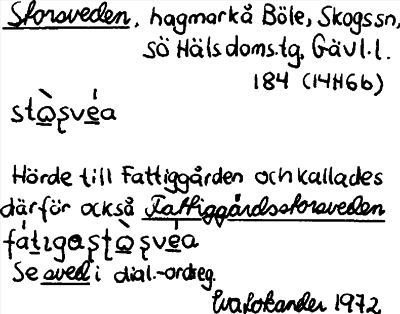 Storsveden, hagmark å Böle, Skogs sn,
sö Hälsdoms.tg, Gävl.l.
184 (14H6b)
stɑ̀ʂvéa
Hörde till Fattiggården och kallades
därför också Fattiggårdsstorsveden
fátɩgaʂtɑ̀ʂvéa
Se sved i dial.-ordreg.
Eva Lokander 1972